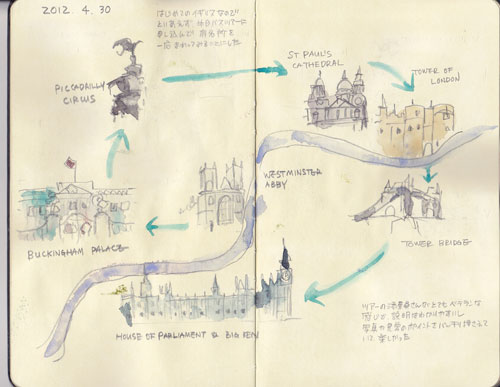 2012. 4. 30
はじめてのイギリスなので
とりあえず、半日バスツアーに
申し込んで、有名所を
一応まわってみることにした
PICCADILLY
CIRCUS
ST PAUL'S
CATHEDRAL
TOWER OF
LONDON
WESTMINSTER
ABBY
BUCKINGHAM PALACE
TOWER BRIDGE
HOUSE OF PARLIAMENT & BIG BEN
ツアーの添乗員さんがとてもベテランな
感じで、説明はわかりやすいし
写真や見学のポイントもバッチリ押さえて
いて、楽しかった